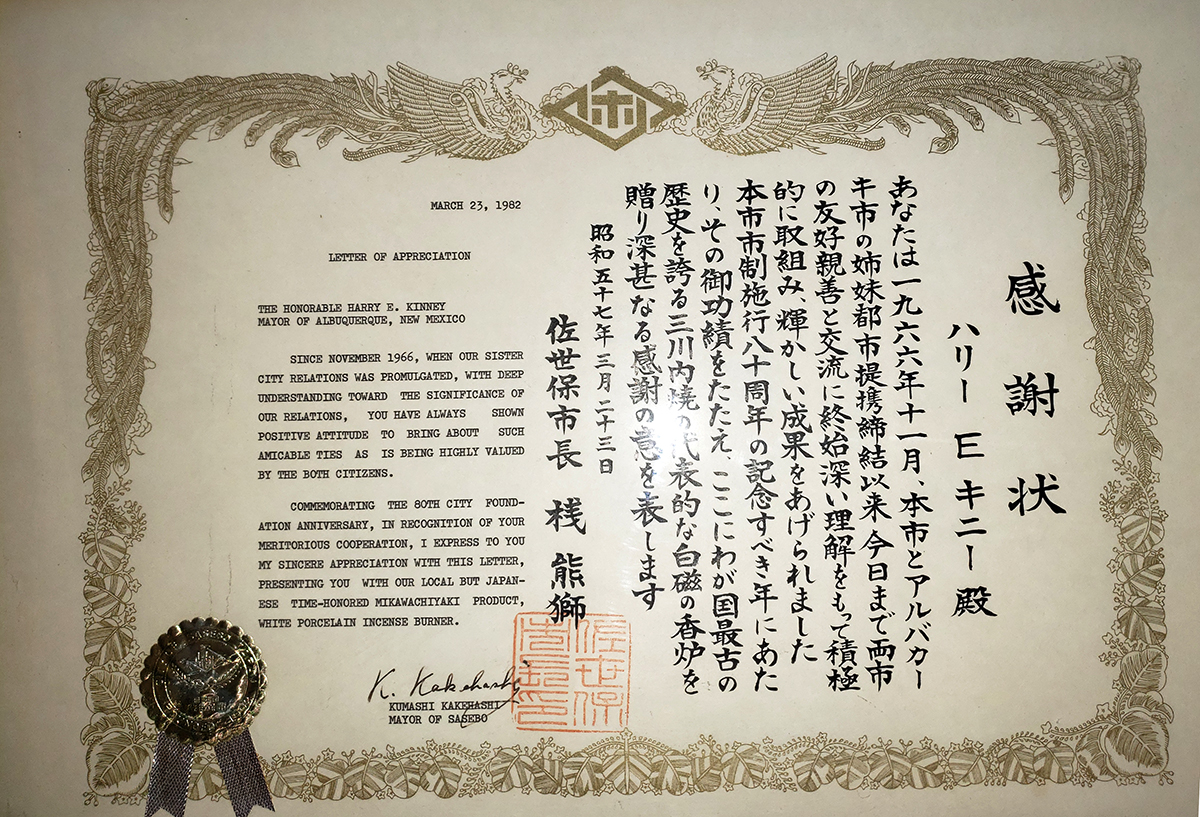 感謝状
ハリー E キニー 殿
あなたは一九六六年十一月、本市とアルバカー
キ市の姉妹都市提携締結以来今日まで両市
の友好親善と交流に終始深い理解をもって積極
的に取組み、輝かしい成果をあげられました
本市市制施行八十周年の記念すべき年にあた
り、その御功績をたたえ、ここにわが国最古の
歴史を誇る三川内焼の代表的な白磁の香炉を
贈り深甚なる感謝の意を表します
昭和五十七年三月二十三日
佐世保市長 桟 熊獅
MARCH 23, 1982
LETTER OF APPRECIATION
THE HONORABLE HARRY E. KINNEY
MAYOR OF ALBUQUERQUE, NEW MEXICO
SINCE NOVEMBER 1966, WHEN OUR SISTER
CITY RELATIONS WAS PROMULGATED, WITH DEEP
UNDERSTANDING TOWARD THE SIGNIFICANCE OF
OUR RELATIONS, YOU HAVE ALWAYS SHOWN
POSITIVE ATTITUDE TO BRING ABOUT SUCH
AMICABLE TIES AS IS BEING HIGHLY VALUED
BY THE BOTH CITIZENS.
COMMEMORATING THE 80TH CITY FOUND-
ATION ANNIVERSARY, IN RECOGNITION OF YOUR
MERITORIOUS COOPERATION, I EXPRESS TO YOU
MY SINCERE APPRECIATION WITH THIS LETTER,
PRESENTING YOU WITH OUR LOCAL BUT JAPAN-
ESE TIME-HONORED MIKAWACHIYAKI PRODUCT,
WHITE PORCELAIN INCENSE BURNER.
K. Kakehashi
KUMASHI KAKEHASHI
MAYOR OF SASEBO
佐世保
市長之印